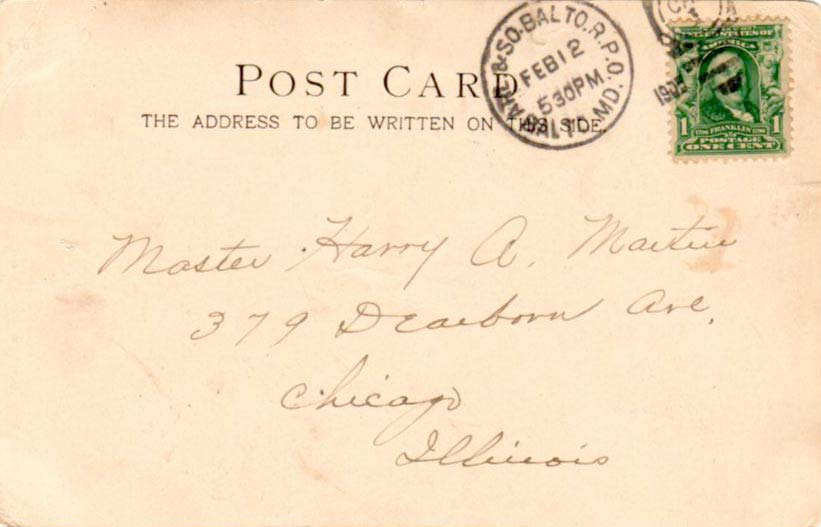 POST CARD
THE ADDRESS TO BE WRITTEN ON THIS SIDE.
& SO. BALTO. R.P.O.
FEB 12
530 PM
BALTO. MD.
UNITED STATES OF
AMERICA
1 FRANKLIN 1
POSTAGE
ONE CENT
Master Harry A. Martin
379 Dearborn Ave.
Chicago
Illinois